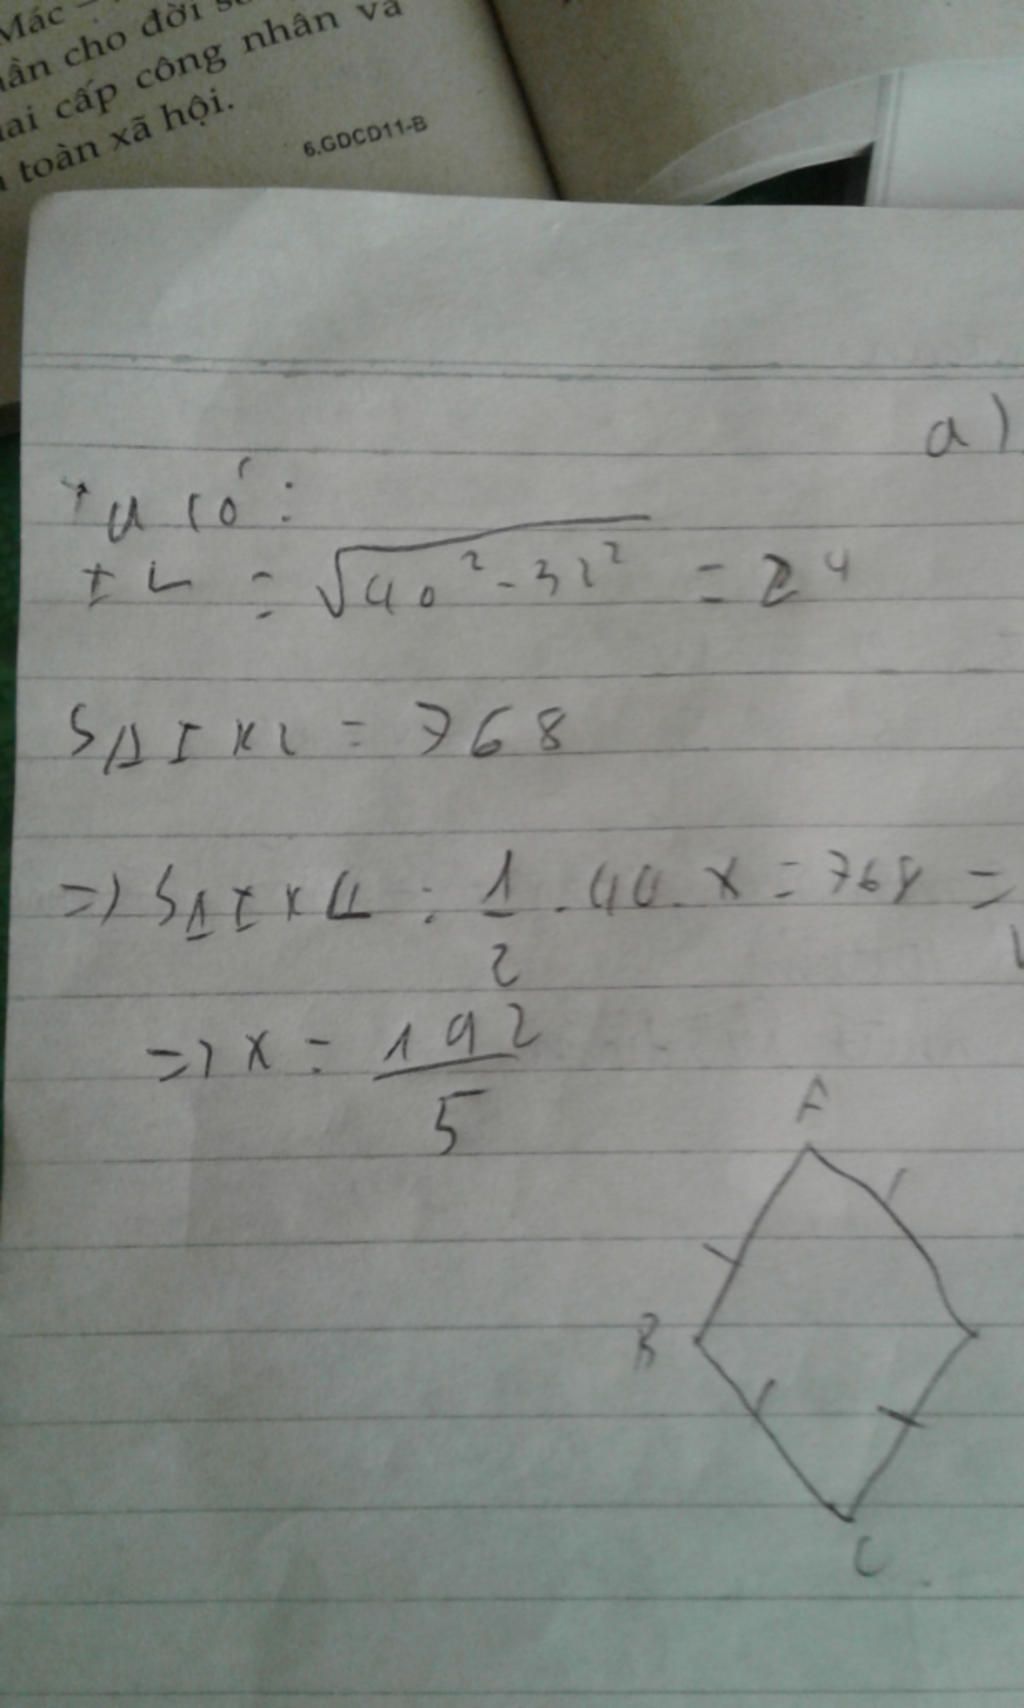 Mác –
ần cho đời s
ai cấp công nhân và
toàn xã hội.
6.GDCD11-B
a)
Ta có:
IL = √40² - 32² = 24
SΔIKL = 768
=> SΔIKL = 1/2 . 40. x = 768 =
=> x = 192/5
A
B
C